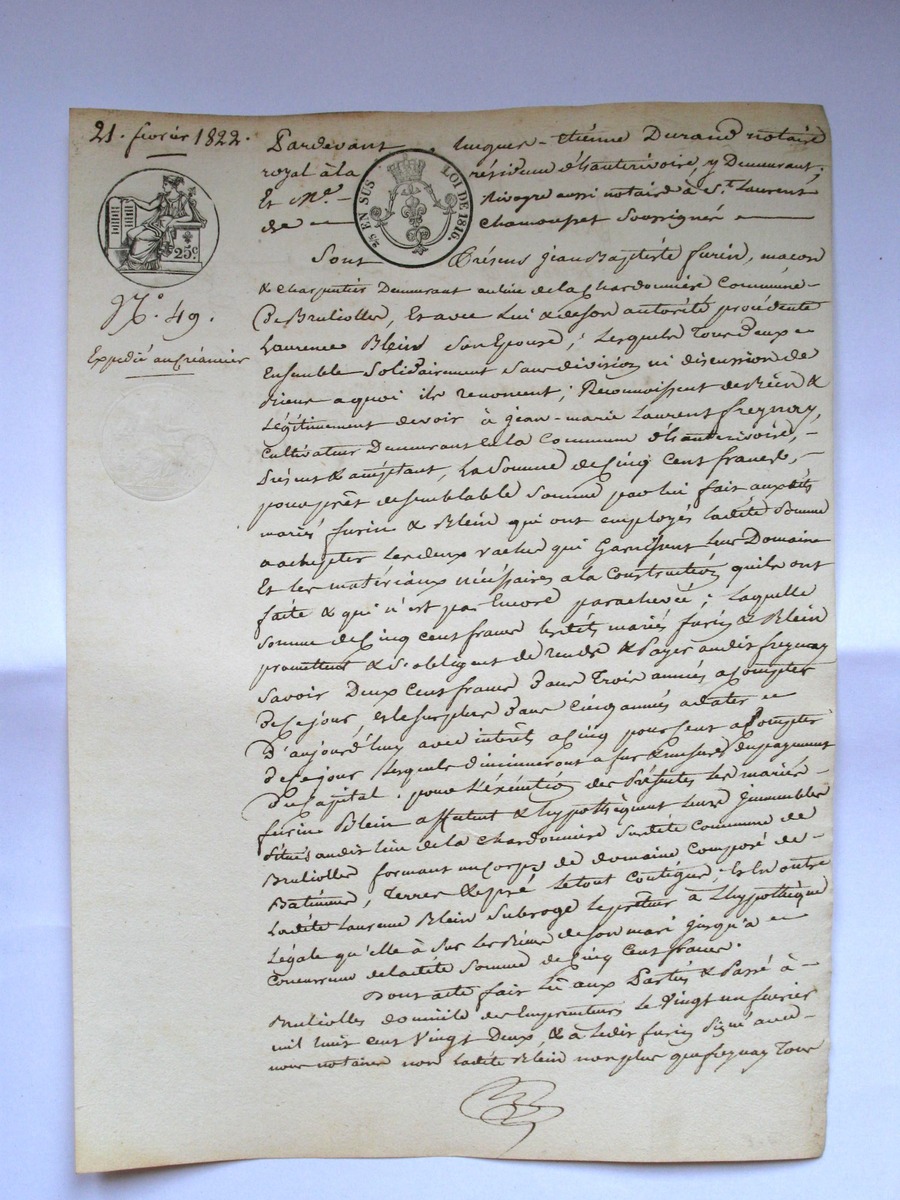 21. fevrier 1822.
Pardevant Jacques-etiénne Durand notaire
royal à la résidence d'hauterivoire, y Demeurant,
Et Me. Rivoyre aussi notaire à St. Laurent
de Chamousset Soussignés
25c
45 EN SUS LOI DE 1816.
Sont Présens jean Baptiste furin, macon
& charpentier Demeurant au lieu de la Chardonnière Commune
De Brulioller, Et avec Lui & de son autorité procédente
Laurence Blein Son Epouse; Lesquels Tous deux
N°. 49.
Expédié au créancier
Ensemble Solidairement Sans division ni discussion de
biens a quoi ils renoncent; Reconnoissent devoir bien &
Légitimement devoir à jean-marie Laurent freynay,
Cultivateur Demeurant en la Commune d'hauterivoire,
Présent & acceptant, La Somme de Cinq Cent francs,
pour prêt de semblable Somme par lui fait auxdits
mariés furin & Blein qui ont employés ladite Somme
a achepter les deux vaches qui Garnissent leur Domaine
Et les matériaux nécéssaires a la Construction qu'ils ont
faite & qui n'est pas Encore parachevée; Laquelle
Somme de Cinq Cent francs lesdits mariés furin & Blein
promettent & s'obligent de rendre & Payer audit freynay
Savoir Deux Cent francs Dans Trois années a Compter
De Ce jour, et le surplus Dans Cinq années a dater
D'aujourd'huy avec intérêts a Cinq pour Cent a Compter
de Ce jour Lesquels Diminueront a fur & mesure du payement
Du Capital. pour L'éxécution des Présentes les mariés
furin Blein affectent & hypothèquent leurs jmmeubles
Situés audit lieu de la chardonnière Susdite Commune de
Brulioller formant un Corps de domaine Composé de
Batimens, Terres & pré le tout Contigue; Et En outre
Ladite Laurence Blein Subroge le prêteur à L'hypothèque
Légale qu'elle à Sur les biens de son mari jusqu'a
Concurrence de ladite Somme de Cinq Cent francs.
Dont acte fait Lû aux Parties & Passé à
Brulioller domicile des Emprunteurs Le Vingt un fevrier
mil huit cent Vingt Deux, & a Ledit furin Signé avec
nous notaires non ladite Blein non plus que freynay Tous